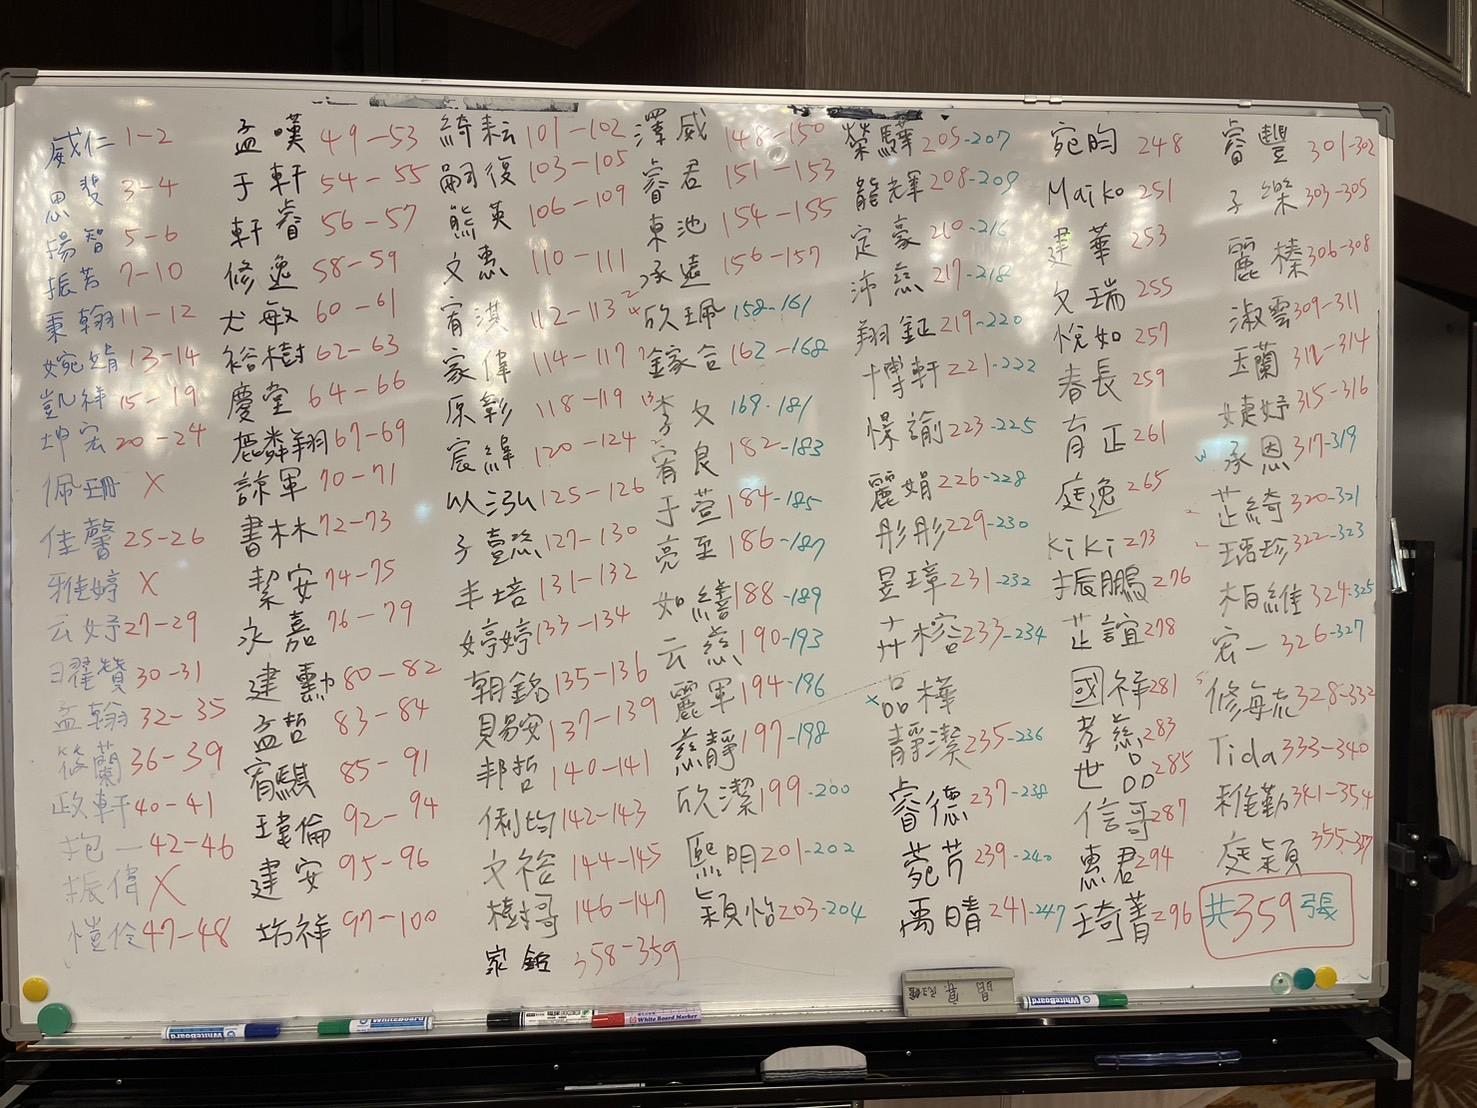 威仁 1-2
思斐 3-4
揚智 5-6
振芳 7-10
秉翰 11-12
婉娟 13-14
凱祥 15-19
坤宏 20-24
佩珊 X
佳馨 25-26
雅婷 X
云妤 27-29
曜贊 30-31
孟翰 32-35
筱蘭 36-39
政軒 40-41
抱一 42-46
振偉 X
愷伶 47-48
孟嘆 49-53
于軒 54-55
軒睿 56-57
修逸 58-59
犬敏 60-61
裕樹 62-63
慶堂 64-66
麟翔 67-69
諒軍 70-71
書林 72-73
絜安 74-75
永嘉 76-79
建勳 80-82
孟哲 83-84
宥騏 85-91
瑋倫 92-94
建安 95-96
坊祥 97-100
綺耘 101-102
嗣復 103-105
熊英 106-109
文惠 110-111
宥淇 112-113
家偉 114-117
原彰 118-119
宸緯 120-124
以泓 125-126
子熹 127-130
丰培 131-132
婷婷 133-134
朝銘 135-136
易安 137-139
邦哲 140-141
俐均 142-143
文裕 144-145
樹哥 146-147
家銘 358-359
澤威 148-150
睿君 151-153
東池 154-155
承遠 156-157
欣珮 158-161
鎵合 162-168
李文 169-181
宥良 182-183
于萱 184-185
亮至 186-187
如繕 188-189
云慈 190-193
麗軍 194-196
慈靜 197-198
欣潔 199-200
熙明 201-202
穎怡 203-204
榮驊 205-207
能輝 208-209
定豪 210-216
沛慈 217-218
翔鉦 219-220
博軒 221-222
懌諭 223-225
麗娟 226-228
彤彤 229-230
昱璋 231-232
卉榕 233-234
x 品樺
靜潔 235-236
睿德 237-238
菀芳 239-240
禹晴 241-247
宛昀 248
Maiko 251
建華 253
文瑞 255
悅如 257
春長 259
育正 261
庭逸 265
KiKi 273
振鵬 276
芷誼 278
國祥 281
孝慈 283
世品 285
信哥 287
惠君 294
琦菁 296
睿豐 301-302
子樂 303-305
麗榛 306-308
淑雲 309-311
玉蘭 312-314
婕妤 315-316
承恩 317-319
芷綺 320-321
瑀珍 322-323
柏維 324-325
宏一 326-327
修毓 328-332
Tida 333-340
雅勤 341-354
庭穎 355-357
共359張
WhiteBoard
WhiteBoard
White Board Marker
WhiteBoard